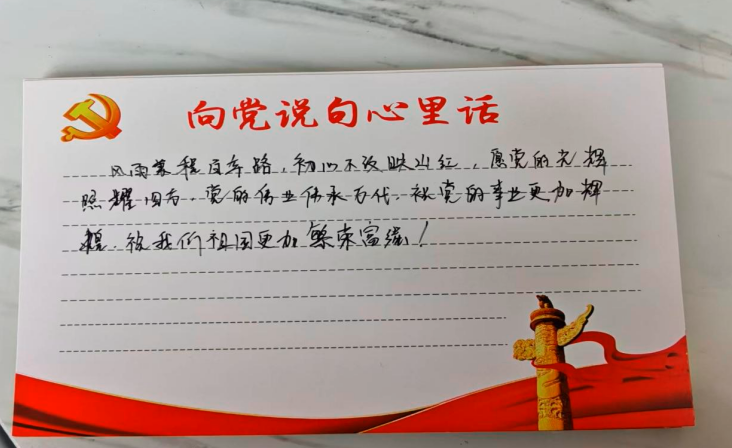 向党说句心里话
风雨兼程百年路，初心不改映山红，愿党的光辉
照耀四方，党的伟业传承万代，祝党的事业更加辉
煌，祝我们祖国更加繁荣富强！